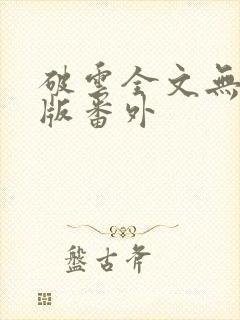 破雲全文無
版番外
盤古斧